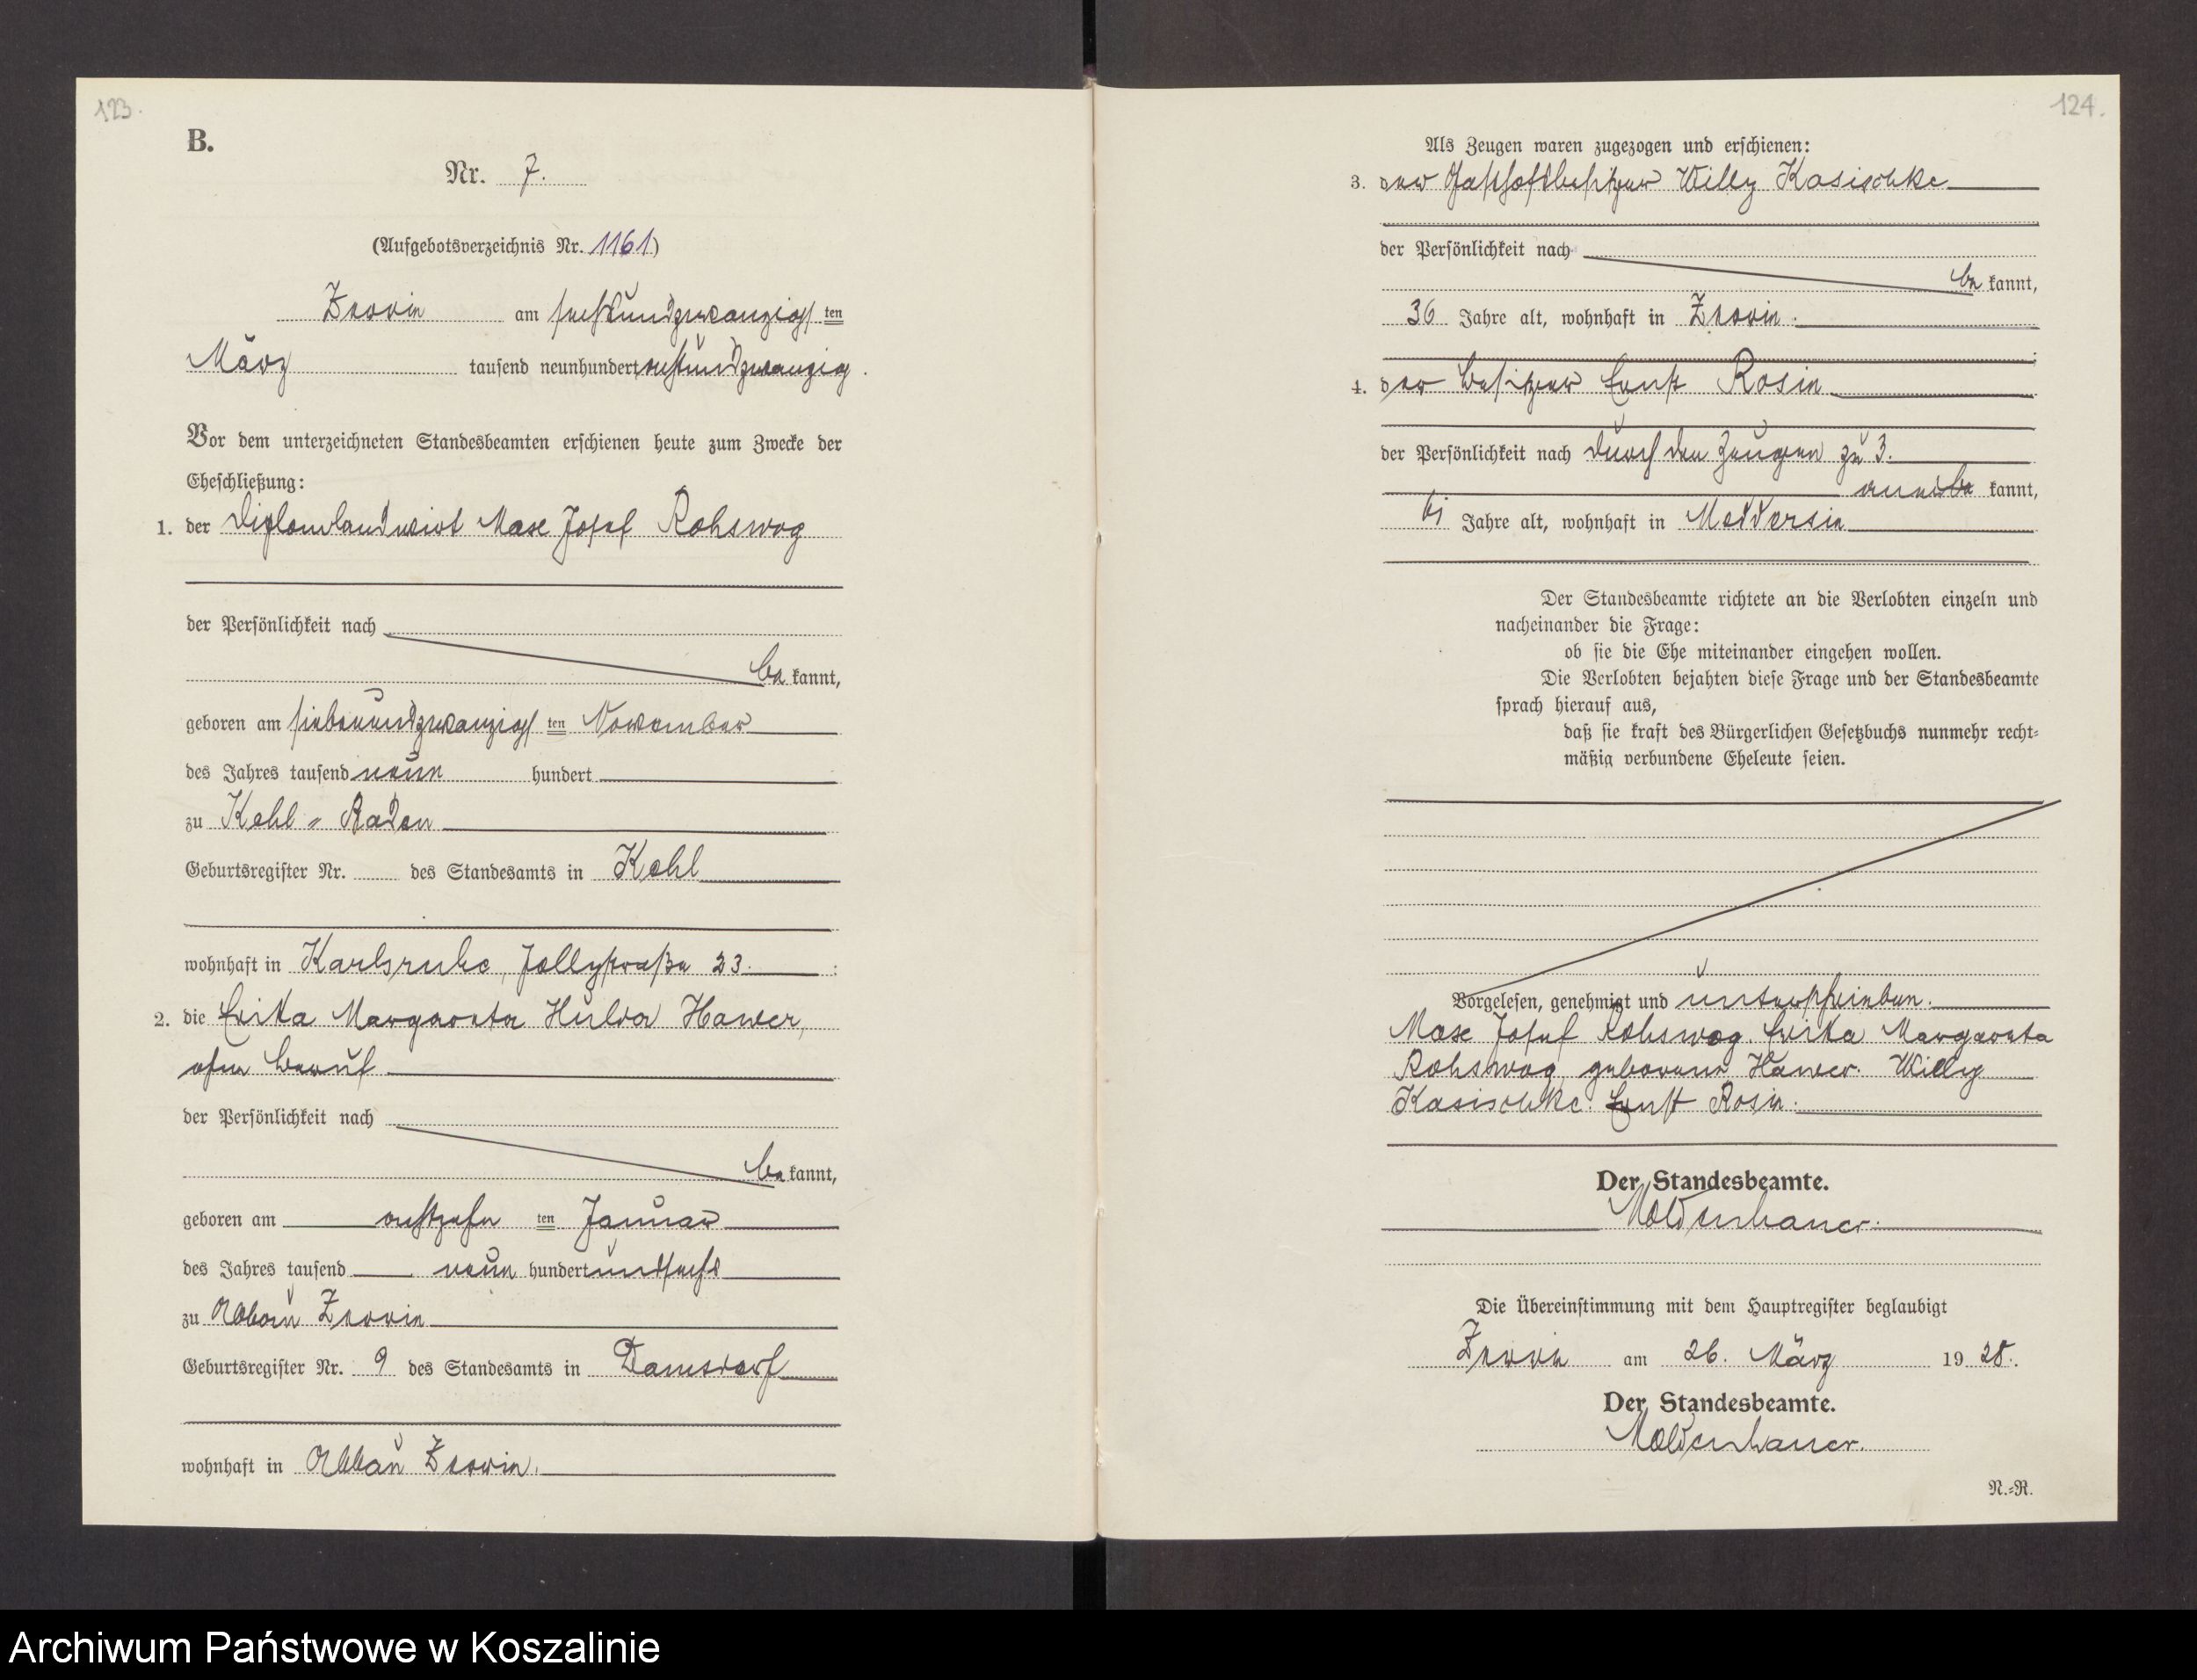 123.
B.
Nr. 7.
(Aufgebotsverzeichnis Nr. 1161)
Zerrin am sechsundzwanzigsten
März tausend neunhundert achtundzwanzig.
Vor dem unterzeichneten Standesbeamten erschienen heute zum Zwecke der
Eheschließung:
1. der Diplomlandwirt Max Josef Rohswog
der Persönlichkeit nach
be kannt,
geboren am siebenundzwanzigsten November
des Jahres tausend neun hundert
zu Kehl - Baden
Geburtsregister Nr. des Standesamts in Kehl
wohnhaft in Karlsruhe, Jollystraße 23.
2. die Erika Margareta Hulda Hawer,
ohne Beruf
der Persönlichkeit nach
be kannt,
geboren am achtzehn ten Januar
des Jahres tausend neun hundert und sechs
zu Abbau Zerrin
Geburtsregister Nr. 9 des Standesamts in Damsdorf
wohnhaft in Abbau Zerrin.
124.
Als Zeugen waren zugezogen und erschienen:
3. der Gasthofbesitzer Willy Kasischke
der Persönlichkeit nach
be kannt,
36 Jahre alt, wohnhaft in Zerrin.
4. der Besitzer Ernst Rosin
der Persönlichkeit nach durch den Zeugen zu 3.
aner kannt,
Jahre alt, wohnhaft in Meddersin
Der Standesbeamte richtete an die Verlobten einzeln und
nacheinander die Frage:
ob sie die Ehe miteinander eingehen wollen.
Die Verlobten bejahten diese Frage und der Standesbeamte
sprach hierauf aus,
daß sie kraft des Bürgerlichen Gesetzbuchs nunmehr recht-
mäßig verbundene Eheleute seien.
Vorgelesen, genehmigt und unterschrieben.
Max Josef Rohswog. Erika Margareta
Rohswog geborene Hawer. Willy
Kasischke. Ernst Rosin.
Der Standesbeamte.
Moldenhauer.
Die Übereinstimmung mit dem Hauptregister beglaubigt
Zerrin am 26. März 19 28.
Der Standesbeamte.
Moldenhauer.
N.-R.
Archiwum Państwowe w Koszalinie